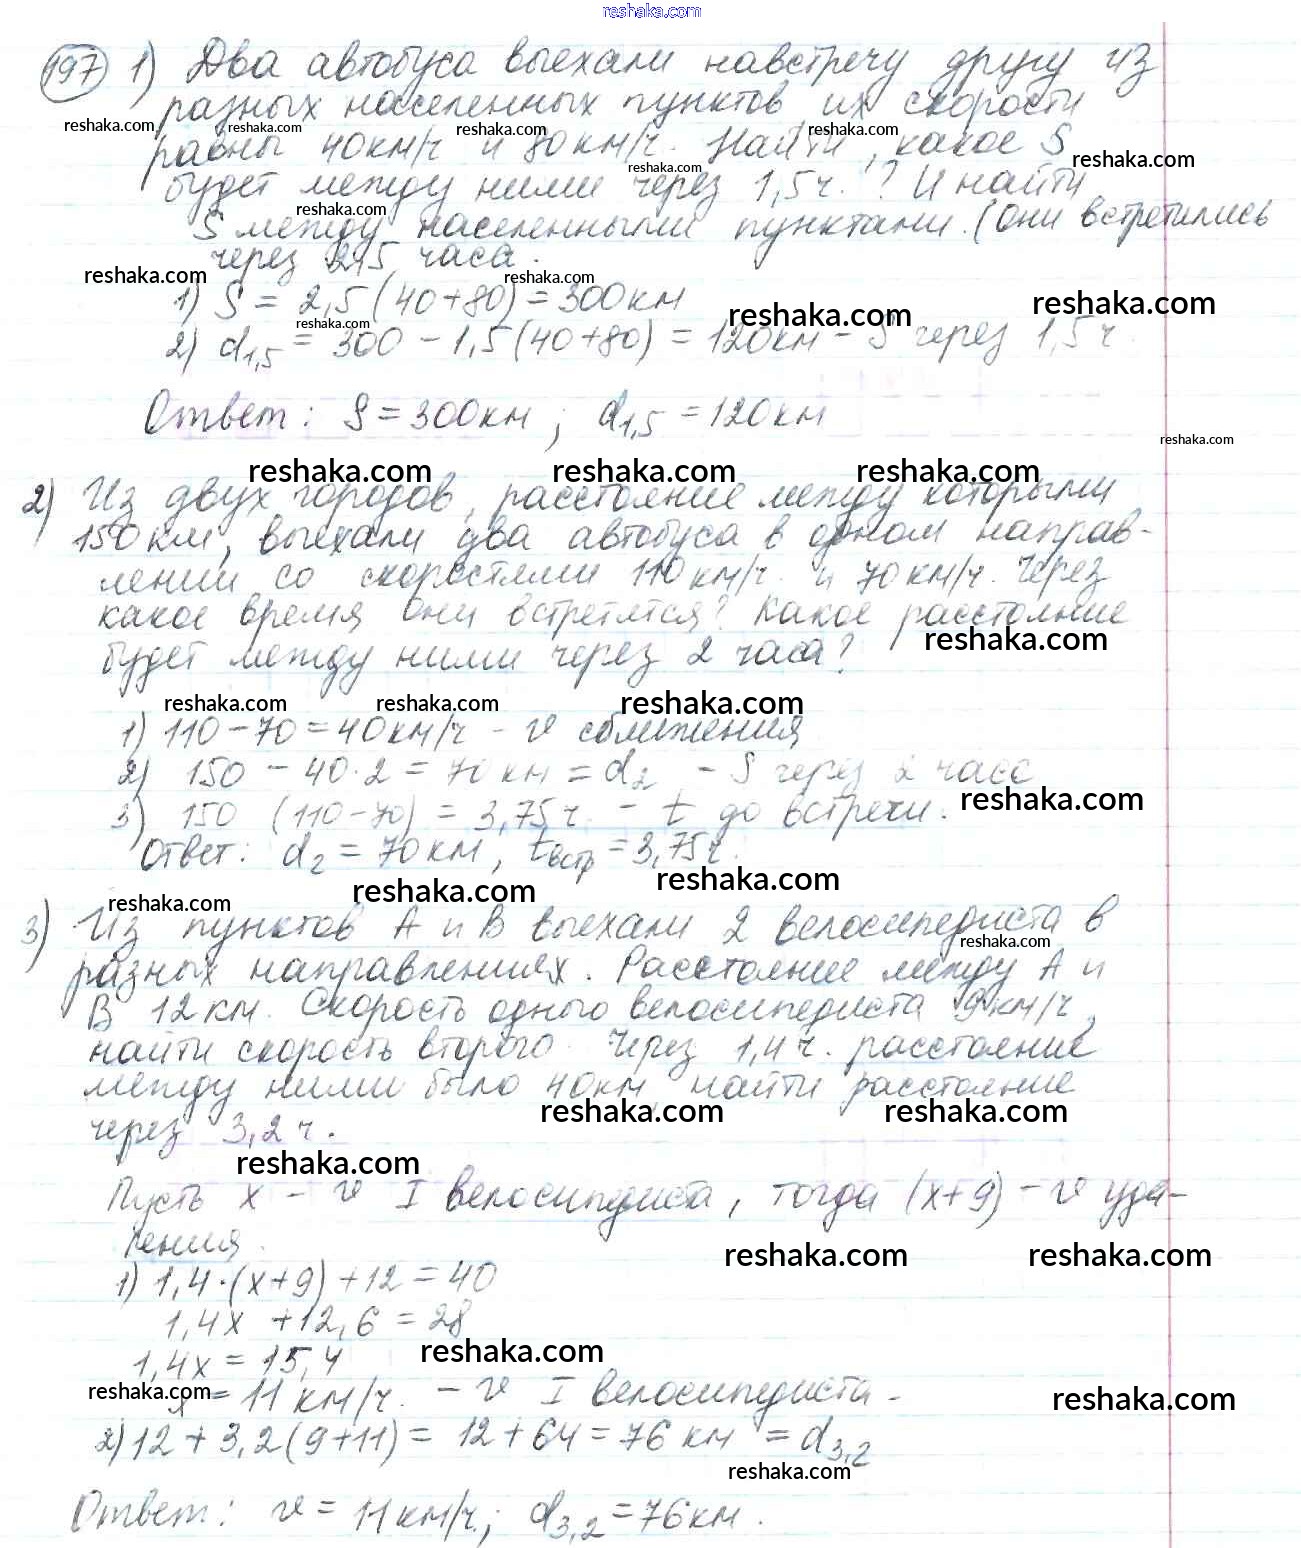 reshaka.com
197 1) Два автобуса выехали навстречу другу из
разных населенных пунктов их скорости
reshaka.com reshaka.com reshaka.com reshaka.com
равны 40км/ч и 80км/ч. Найти, какое S
reshaka.com reshaka.com
будет между ними через 1,5ч.? И найти
reshaka.com
S между населенными пунктами. (Они встретились
через 2,5 часа.
reshaka.com reshaka.com
1) S = 2,5(40+80) = 300км
reshaka.com reshaka.com reshaka.com
2) d1,5 = 300 - 1,5(40+80) = 120км - S через 1,5ч.
Ответ: S = 300км; d1,5 = 120км
reshaka.com
reshaka.com reshaka.com reshaka.com
2) Из двух городов, расстояние между которыми
150км, выехали два автобуса в одном направ-
лении со скоростями 110км/ч. и 70км/ч. Через
какое время они встретятся? Какое расстояние
reshaka.com
будет между ними через 2 часа?
reshaka.com reshaka.com reshaka.com
1) 110 - 70 = 40км/ч - v сближения
2) 150 - 40·2 = 70км = d2 - S через 2 часа
reshaka.com
3) 150 (110-70) = 3,75ч. - t до встречи.
Ответ: d2 = 70км, tвстр = 3,75ч.
reshaka.com reshaka.com reshaka.com
3) Из пунктов А и В выехали 2 велосипедиста в
reshaka.com
разных направлениях. Расстояние между А и
В 12км. Скорость одного велосипедиста 9км/ч,
найти скорость второго. Через 1,4ч. расстояние
между ними было 40км, найти расстояние
reshaka.com reshaka.com
через 3,2ч.
reshaka.com
Пусть х - v I велосипедиста, тогда (х+9) - v уда-
ления.
reshaka.com reshaka.com
1) 1,4·(х+9)+12 = 40
1,4х + 12,6 = 28
reshaka.com
1,4х = 15,4
reshaka.com reshaka.com
х = 11 км/ч. - v I велосипедиста.
2) 12 + 3,2(9+11) = 12 + 64 = 76 км = d3,2
reshaka.com
Ответ: v = 11км/ч.; d3,2 = 76км.